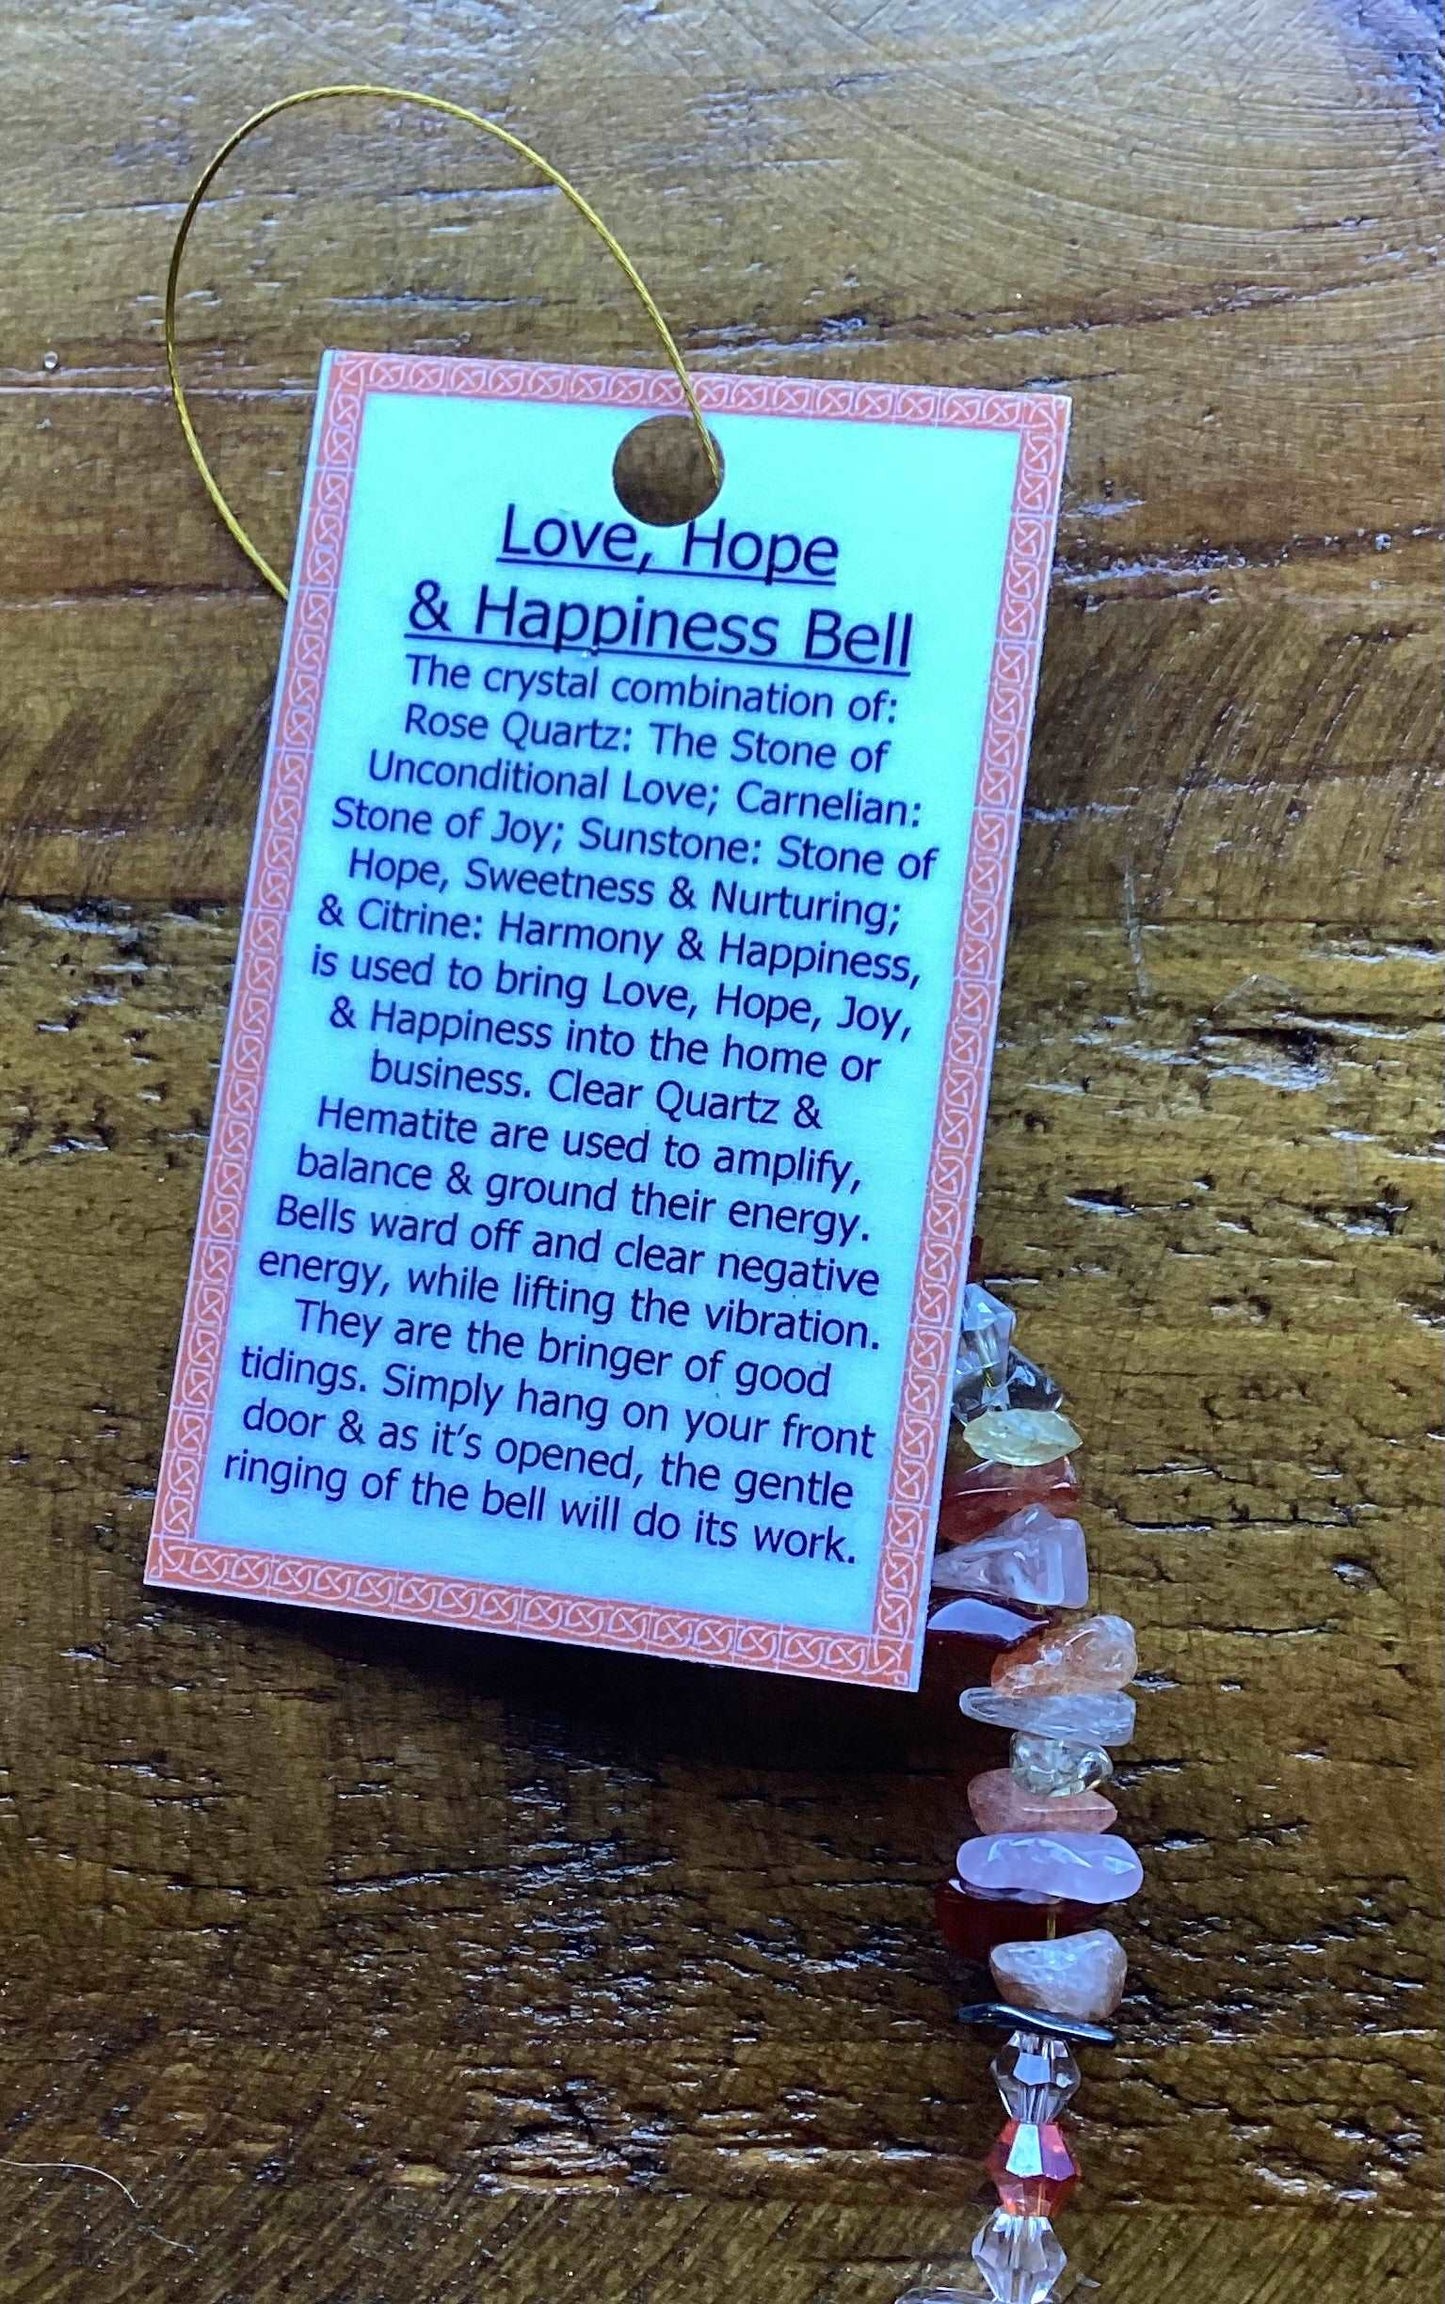 Love, Hope
& Happiness Bell
The crystal combination of:
Rose Quartz: The Stone of
Unconditional Love; Carnelian:
Stone of Joy; Sunstone: Stone of
Hope, Sweetness & Nurturing;
& Citrine: Harmony & Happiness,
is used to bring Love, Hope, Joy,
& Happiness into the home or
business. Clear Quartz &
Hematite are used to amplify,
balance & ground their energy.
Bells ward off and clear negative
energy, while lifting the vibration.
They are the bringer of good
tidings. Simply hang on your front
door & as it’s opened, the gentle
ringing of the bell will do its work.